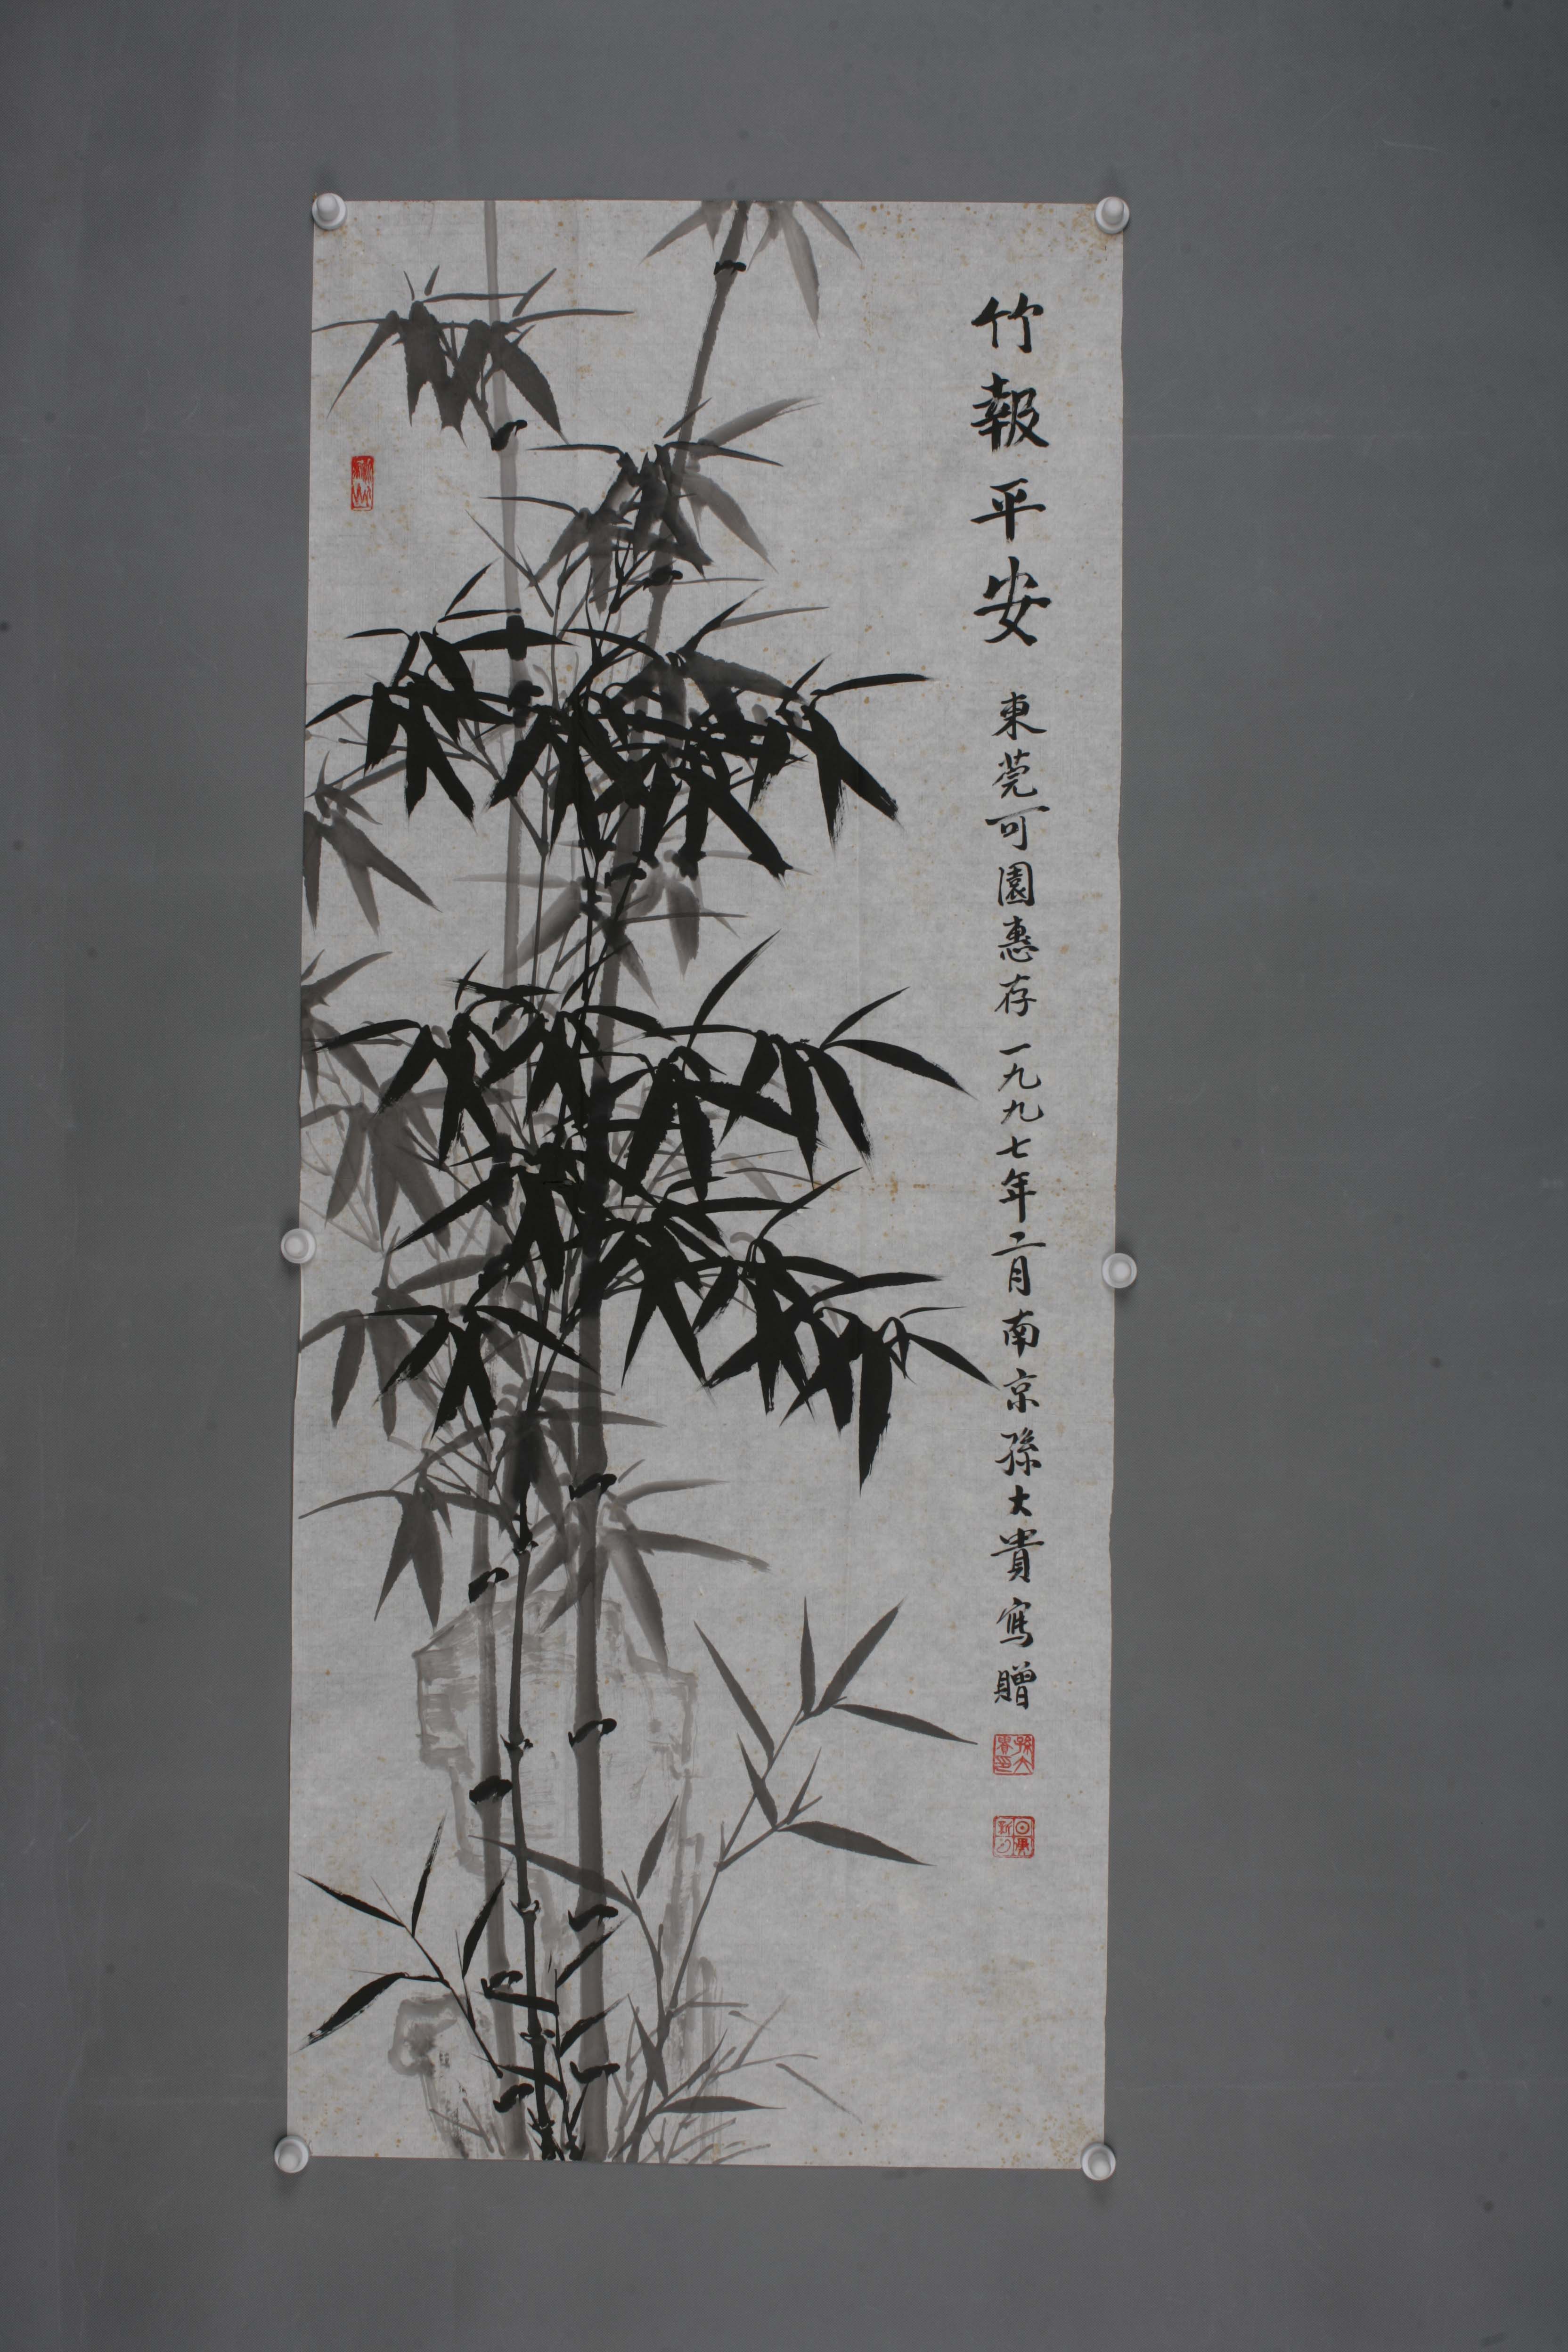 竹報平安 東莞可園惠存 一九九七年二月南京孫大貴寫贈
孫大貴印